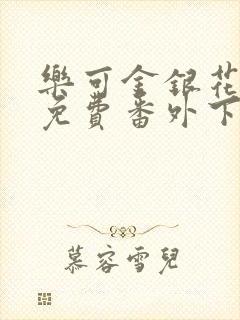 樂可金銀花
免費番外下
慕容雪兒